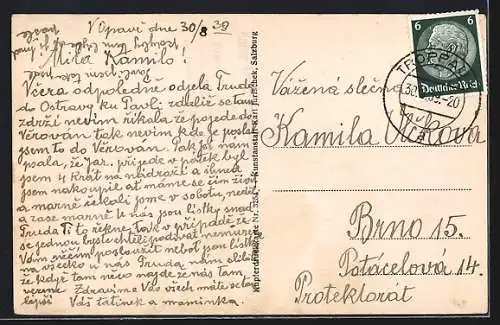 V Opavě dne 30/8 39
Milá Kamilo!
Včera odpoledne odjela Truda
do Ostravy ku Pavli zdali se tam
zdrží nevím říkala že pojede do
Věrovan tak nevím kde je poslal
jsem to do Věrovan. Tak jak nám
psala, že Jar. přijede v pátek byl
jsem 4 krát na nádraží a hned
jsem nakoupil ať máme se čím živit
a marně čekali jsme v sobotu, neděli
a zase marně U nás jsou lístky snad
Truda Ti to řekne, tak v případě že
se jednou bys chtěl podívat nemůžem
Vám ničím posloužit neboť jsou lístky
na všecko u nás Truda nám slíbila
že když tam něco najde že nás tam
vezme Zdravíme Vás všech máte se tam
lépší Váš tatínek a maminka.
Kupfertiefdruck Nr. Kunstanstalt Karl Jurischek, Salzburg
6 6
Deutsches Reich
TROPPAU
Vážená slečna
Kamila
Brno 15.
Potácelová 14.
Protektorát